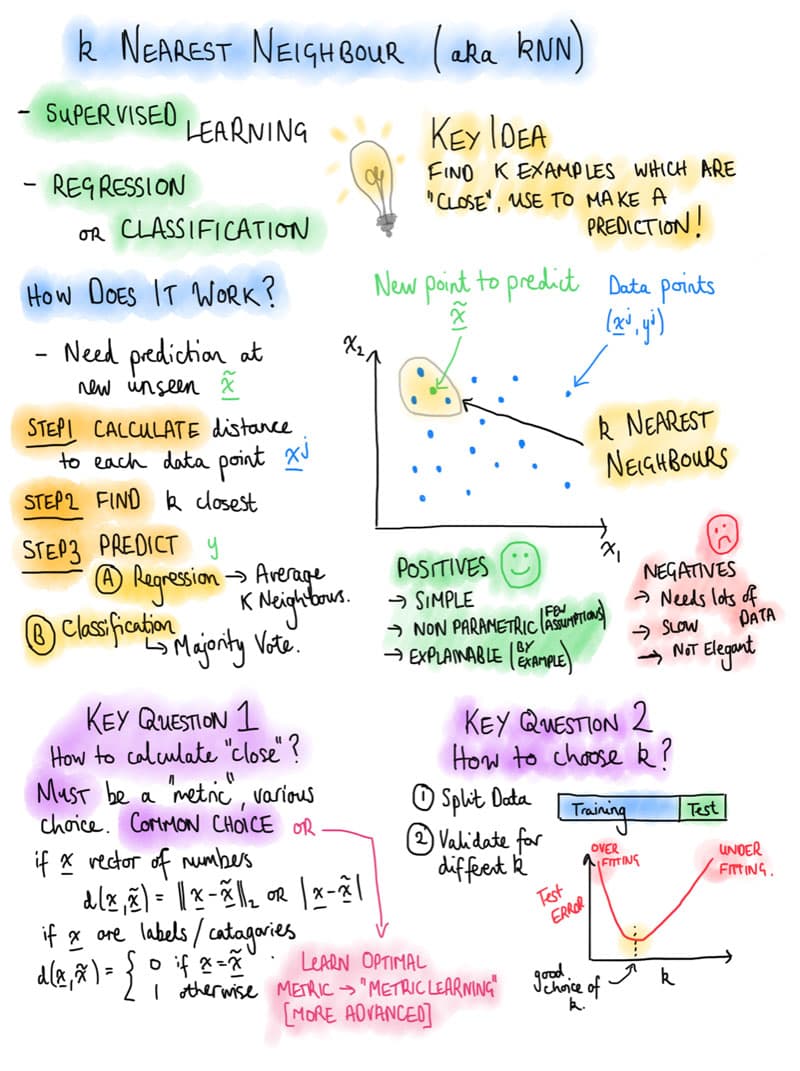 k NEAREST NEIGHBOUR (aka kNN)
- SUPERVISED LEARNING
- REGRESSION
OR CLASSIFICATION
KEY IDEA
FIND K EXAMPLES WHICH ARE
"CLOSE", USE TO MAKE A
PREDICTION!
HOW DOES IT WORK?
- Need prediction at
new unseen x̃
STEP1 CALCULATE distance
to each data point xʲ
STEP2 FIND k closest
STEP3 PREDICT y
(A) Regression → Average
K Neighbours.
(B) Classification
↳ Majority Vote.
New point to predict
x̃
Data points
(xʲ, yʲ)
x₂
k NEAREST
NEIGHBOURS
x₁
POSITIVES
→ SIMPLE
→ NON PARAMETRIC (FEW ASSUMPTIONS)
→ EXPLAINABLE (BY EXAMPLE)
NEGATIVES
→ Needs lots of
DATA
→ SLOW
→ NOT Elegant
KEY QUESTION 1
How to calculate "close"?
MUST be a "metric", various
choice. COMMON CHOICE OR
if x vector of numbers
d(x, x̃) = ||x - x̃||₂ OR |x - x̃|
if x are labels/catagories
d(x, x̃) = { 0 if x = x̃
1 otherwise
LEARN OPTIMAL
METRIC → "METRIC LEARNING"
[MORE ADVANCED]
KEY QUESTION 2
How to choose k?
① Split Data
Training Test
② Validate for
differt k
OVER
FITTING
UNDER
FITTING.
Test
ERROR
good
choice of
k.
k